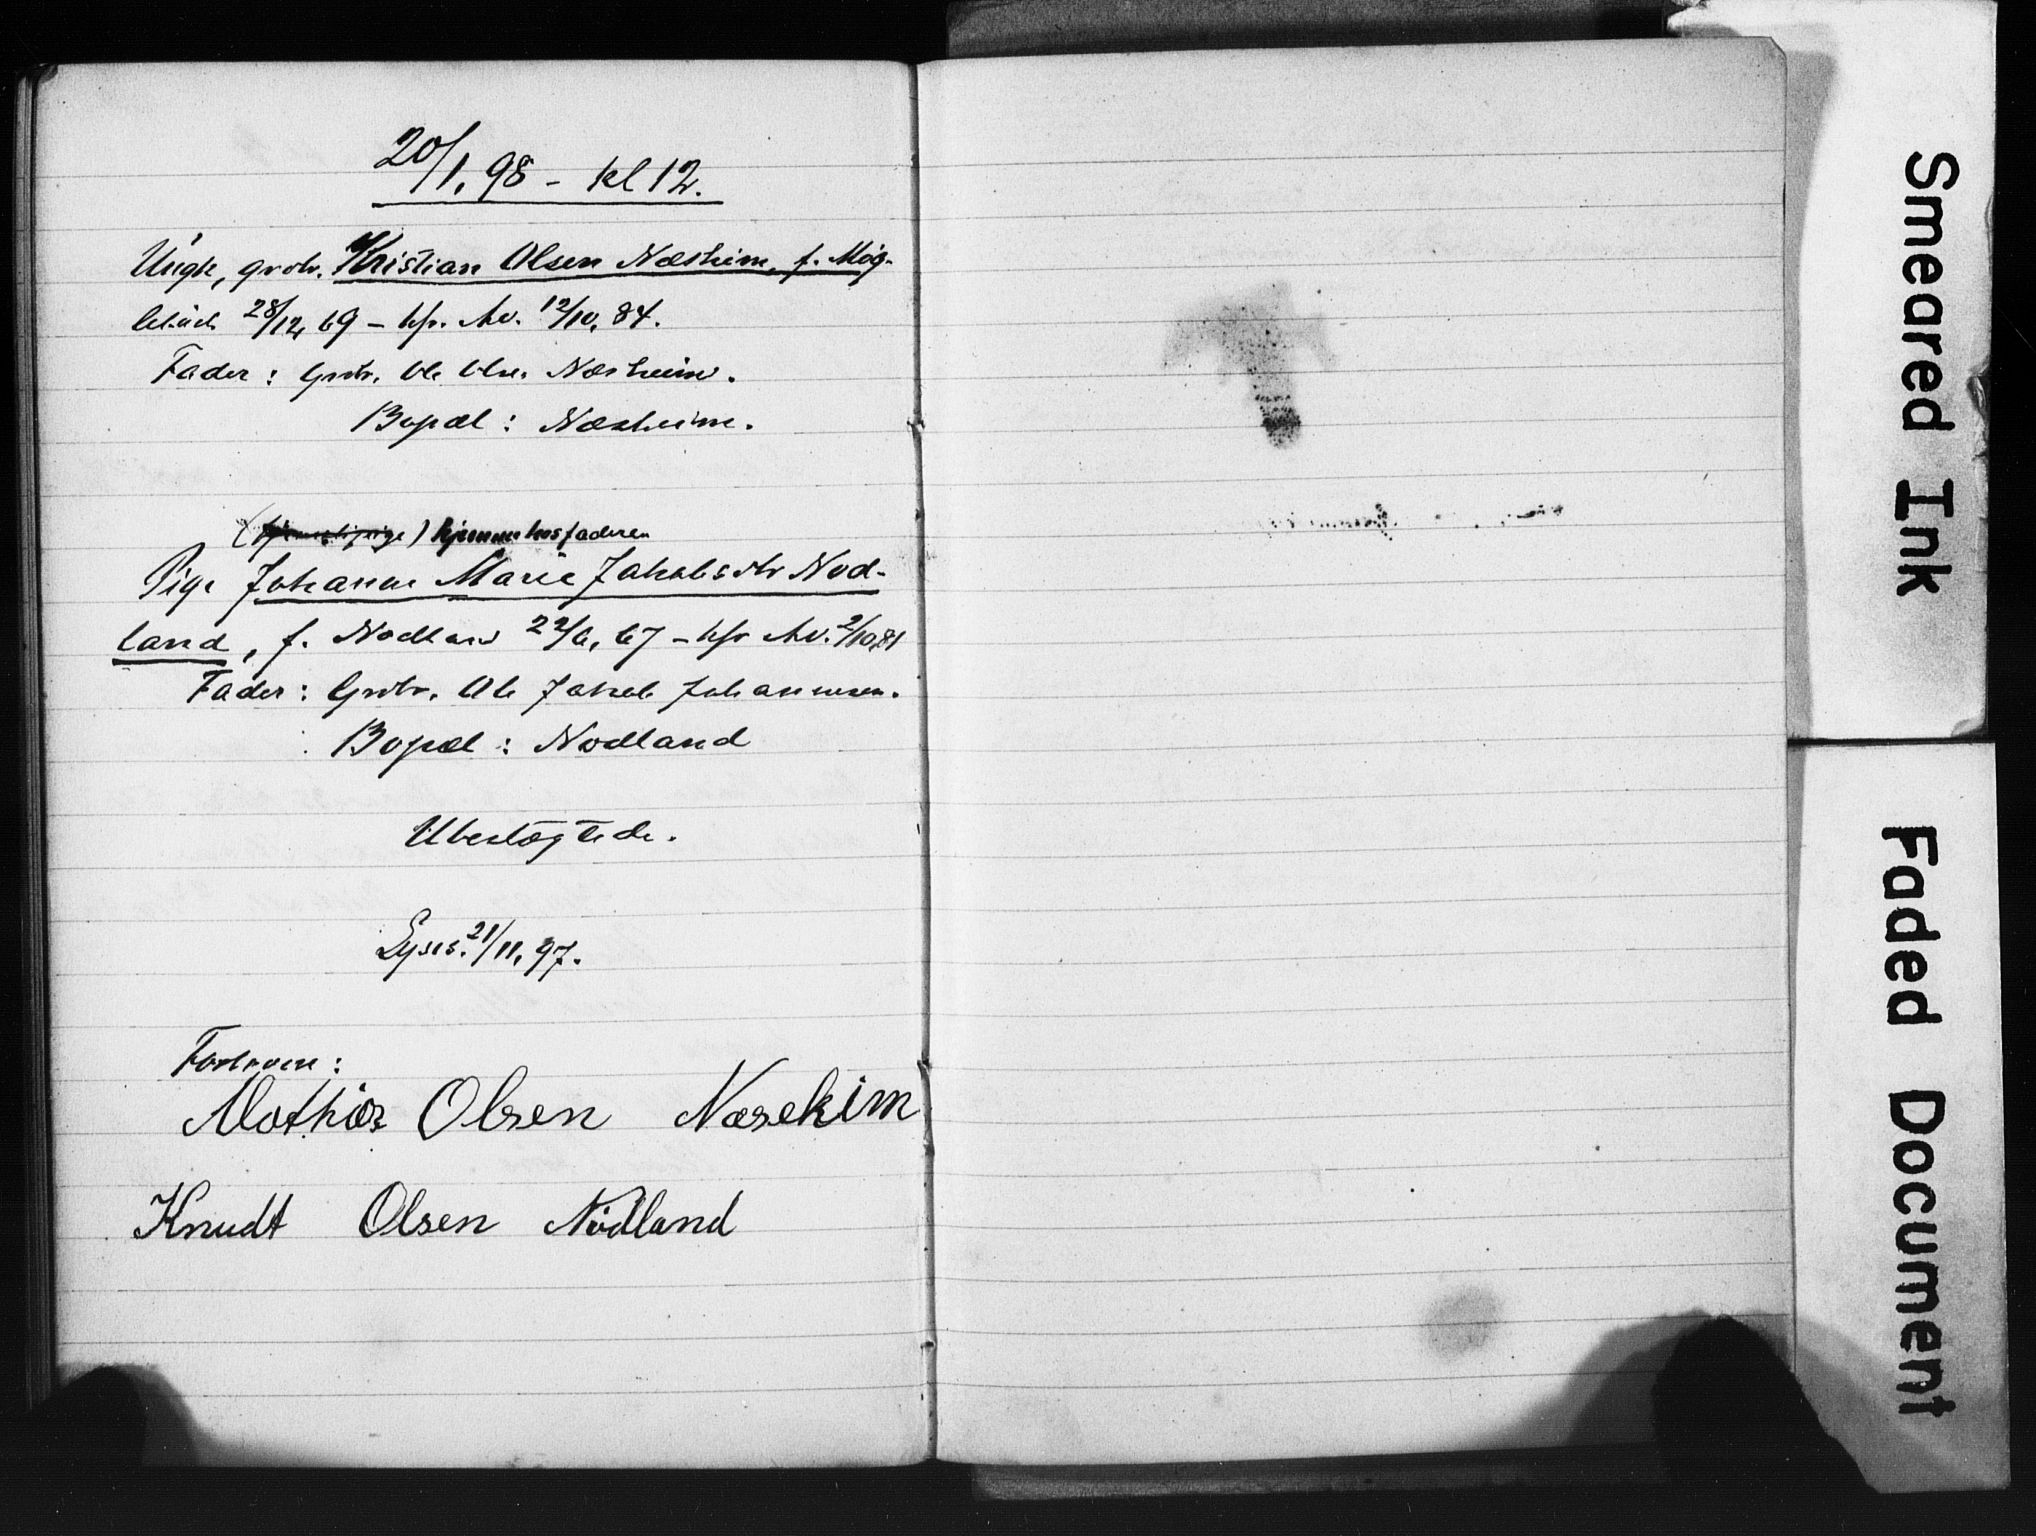 20/1, 98 - kl 12.
Ungk, grdbr. Kristian Olsen Næsheim, f. Møg-
lebust 28/12, 69 - kfr. Av. 12/10, 84.
Fader: Grdbr. Ole Olsen Næsheim.
Bopæl: Næsheim.
hjemme hos faderen
Pige Johanne Marie Jakobsdtr Nod-
land, f. Nodland 22/6, 67 - kfr Av. 2/10, 81
Fader: Grdbr. Ole Jakob Johannesen.
Bopæl: Nodland
Ubeslægtede.
Lyses. 21/11, 97.
Forlovere:
Mathias Olsen Næsekim
Knudt Olsen Nødland
Smeared Ink
Faded Document